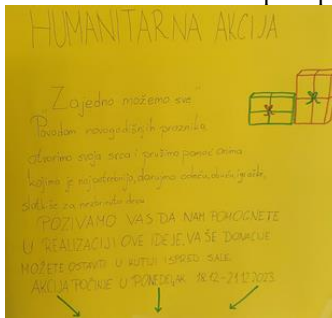 HUMANITARNA AKCIJA
"Zajedno možemo sve"
Povodom novogodišnjih praznika
otvorimo svoja srca i pružimo pomoć onima
kojima je najpotrebnija, darujmo odeću, obuću, igračke,
slatkiše za
POZIVAMO VAS DA NAM POMOGNETE
U REALIZACIJI OVE IDEJE, VAŠE DONACIJE
MOŽETE OSTAVITI U KUTIJI ISPRED SALE.
AKCIJA POČINJE U PONEDELJAK 18.12-21.12.2023.